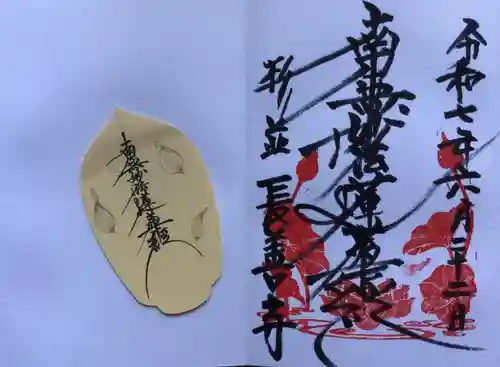 令和七年六月二十二日
南無妙法蓮華経
杉並
長善寺
南無妙法蓮華経